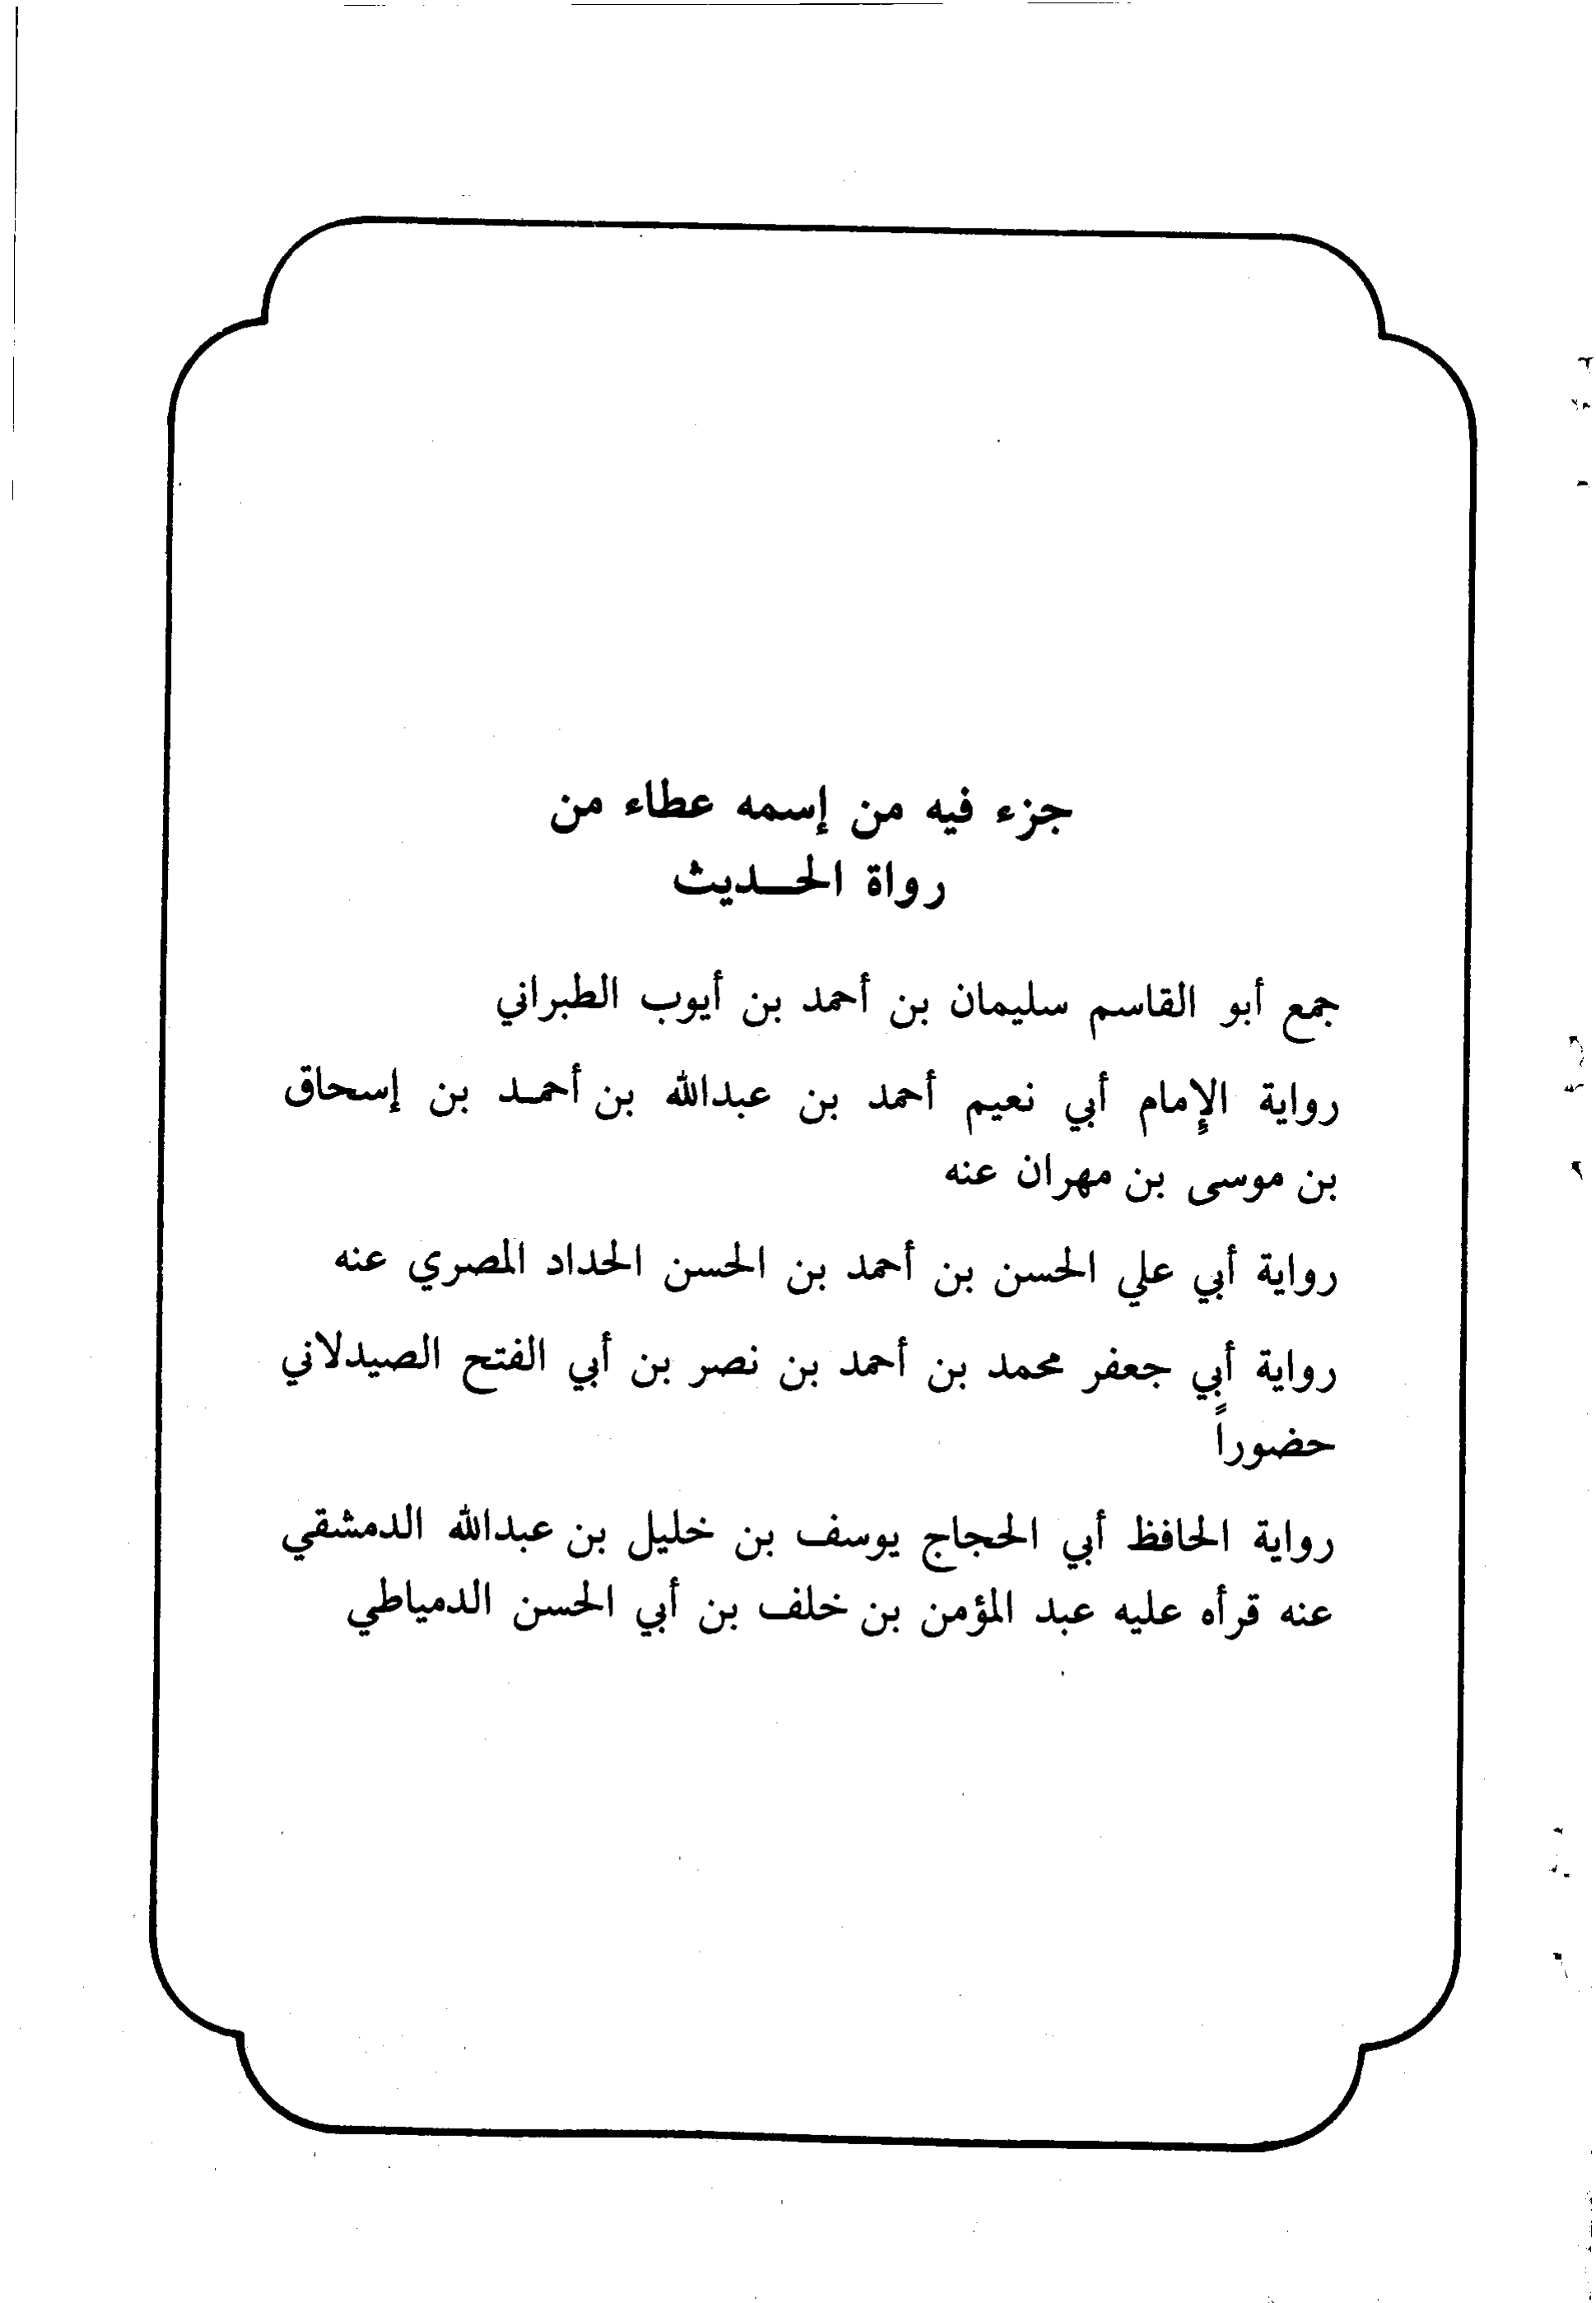 جزء فيه من إسمه عطاء من
رواة الحـديث
جمع أبو القاسم سليمان بن أحمد بن أيوب الطبراني
رواية الإمام أبي نعيم أحمد بن عبدالله بن أحمـد بن إسحاق
بن موسى بن مهران عنه
رواية أبي علي الحسن بن أحمد بن الحسن الحداد المصري عنه
رواية أبي جعفر محمد بن أحمد بن نصر بن أبي الفتح الصيدلاني
حضوراً
رواية الحافظ أبي الحجاج يوسف بن خليل بن عبدالله الدمشقي
عنه قرأه عليه عبد المؤمن بن خلف بن أبي الحسن الدمياطي